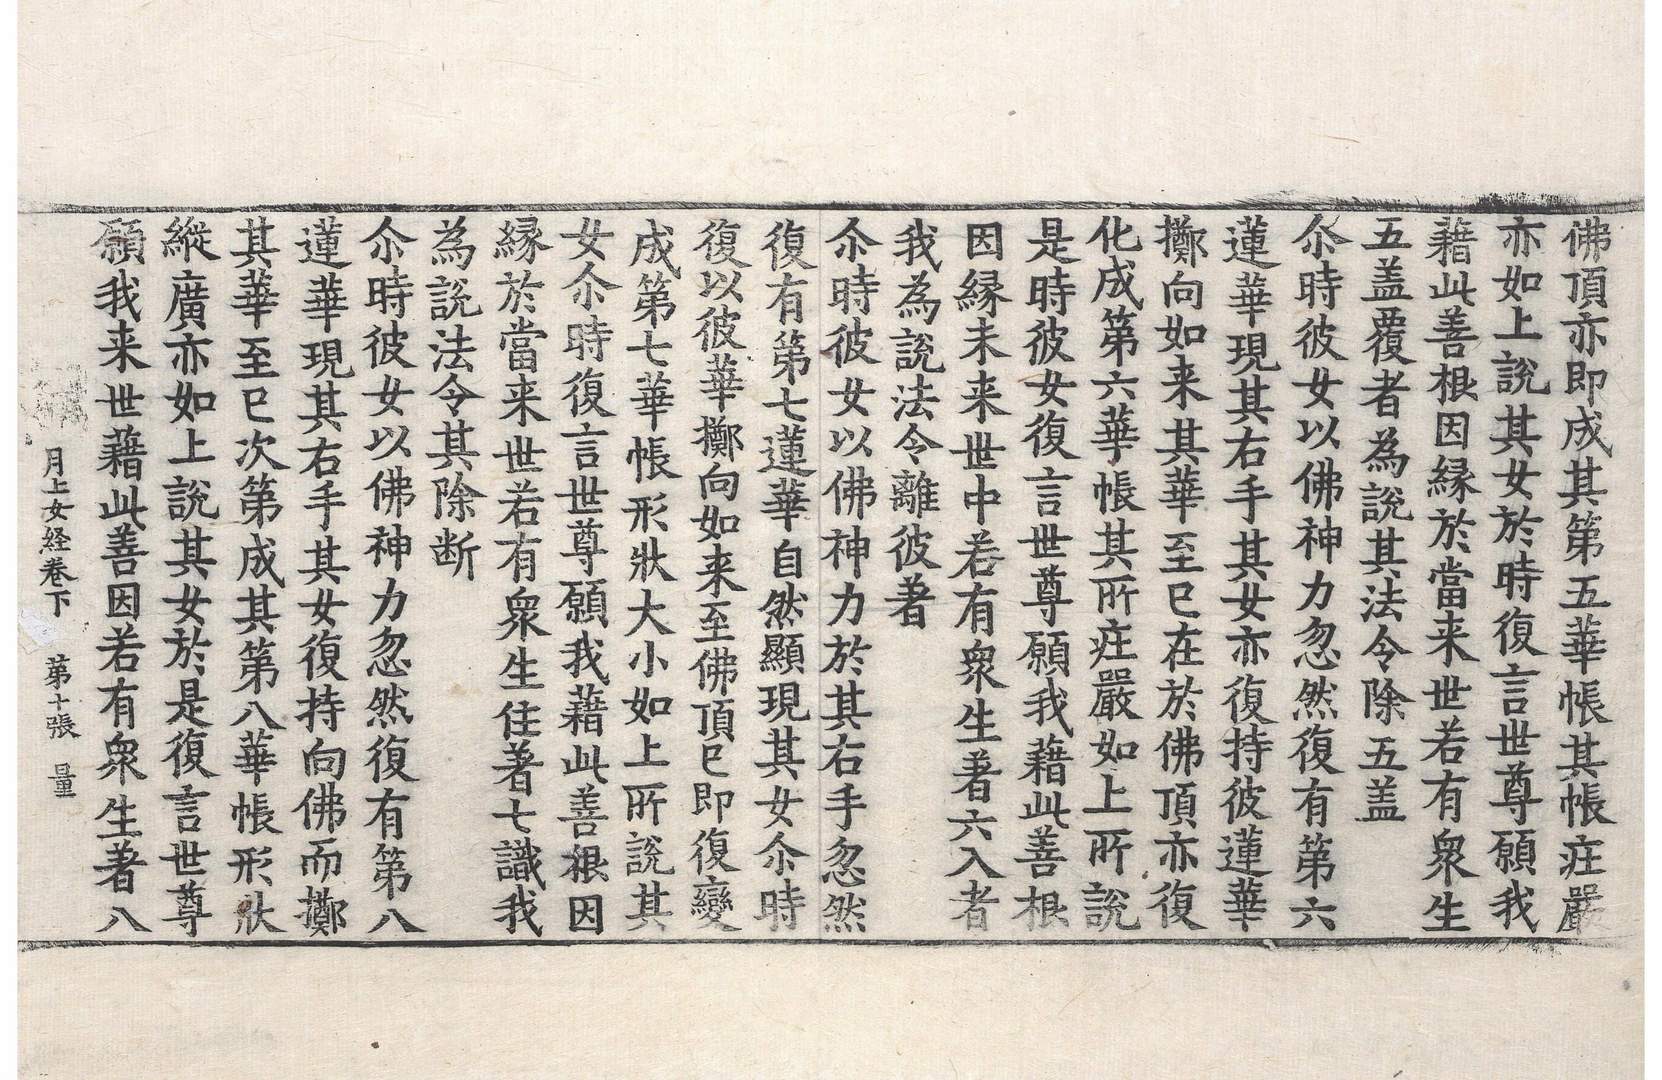 佛頂亦即成其第五華帳其帳㽵嚴
亦如上說其女於時復言世尊願我
藉此善根因緣於當来世若有衆生
五盖覆者為說其法令除五盖
尒時彼女以佛神力忽然復有第六
蓮華現其右手其女亦復持彼蓮華
擲向如来其華至已在於佛頂亦復
化成第六華帳其所㽵嚴如上所說
是時彼女復言世尊願我藉此善根
因緣未来世中若有衆生著六入者
我為說法令離彼著
尒時彼女以佛神力於其右手忽然
復有第七蓮華自然顯現其女尒時
復以彼華擲向如来至佛頂已即復變
成第七華帳形狀大小如上所說其
女尒時復言世尊願我藉此善根因
緣於當来世若有衆生住著七識我
為說法令其除断
尒時彼女以佛神力忽然復有第八
蓮華現其右手其女復持向佛而擲
其華至已次第成其第八華帳形狀
縱廣亦如上說其女於是復言世尊
願我来世藉此善因若有衆生著八
月上女経卷下 第十張 量